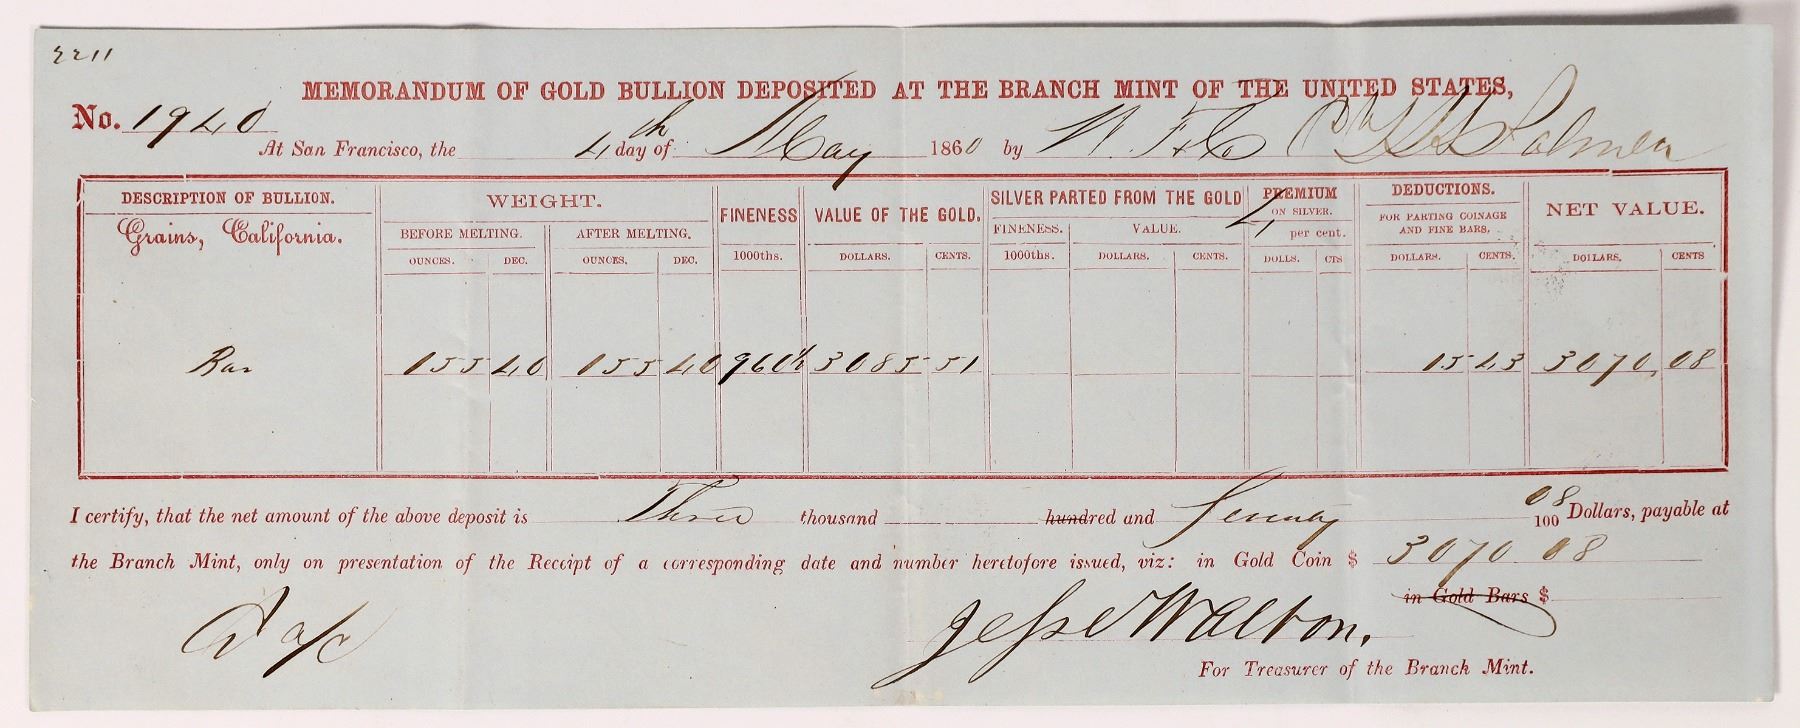 2211
MEMORANDUM OF GOLD BULLION DEPOSITED AT THE BRANCH MINT OF THE UNITED STATES,
No. 1940
At San Francisco, the 4th day of May 1860 by W. F. & Co
DESCRIPTION OF BULLION. WEIGHT. FINENESS VALUE OF THE GOLD. SILVER PARTED FROM THE GOLD PREMIUM DEDUCTIONS. NET VALUE.
Grains, California. BEFORE MELTING. AFTER MELTING. FINENESS. VALUE. ON SILVER. per cent. FOR PARTING COINAGE AND FINE BARS.
OUNCES. DEC. OUNCES. DEC. 1000ths. DOLLARS. CENTS. 1000ths. DOLLARS. CENTS. DOLLS. CTS DOLLARS. CENTS. DOLLARS. CENTS
Bar 155 40 155 40 960½ 3085 51 15 43 3070 08
I certify, that the net amount of the above deposit is Three thousand hundred and Seventy 08/100 Dollars, payable at
the Branch Mint, only on presentation of the Receipt of a corresponding date and number heretofore issued, viz: in Gold Coin $ 3070 08
in Gold Bars $
a/c
Jesse Walton.
For Treasurer of the Branch Mint.